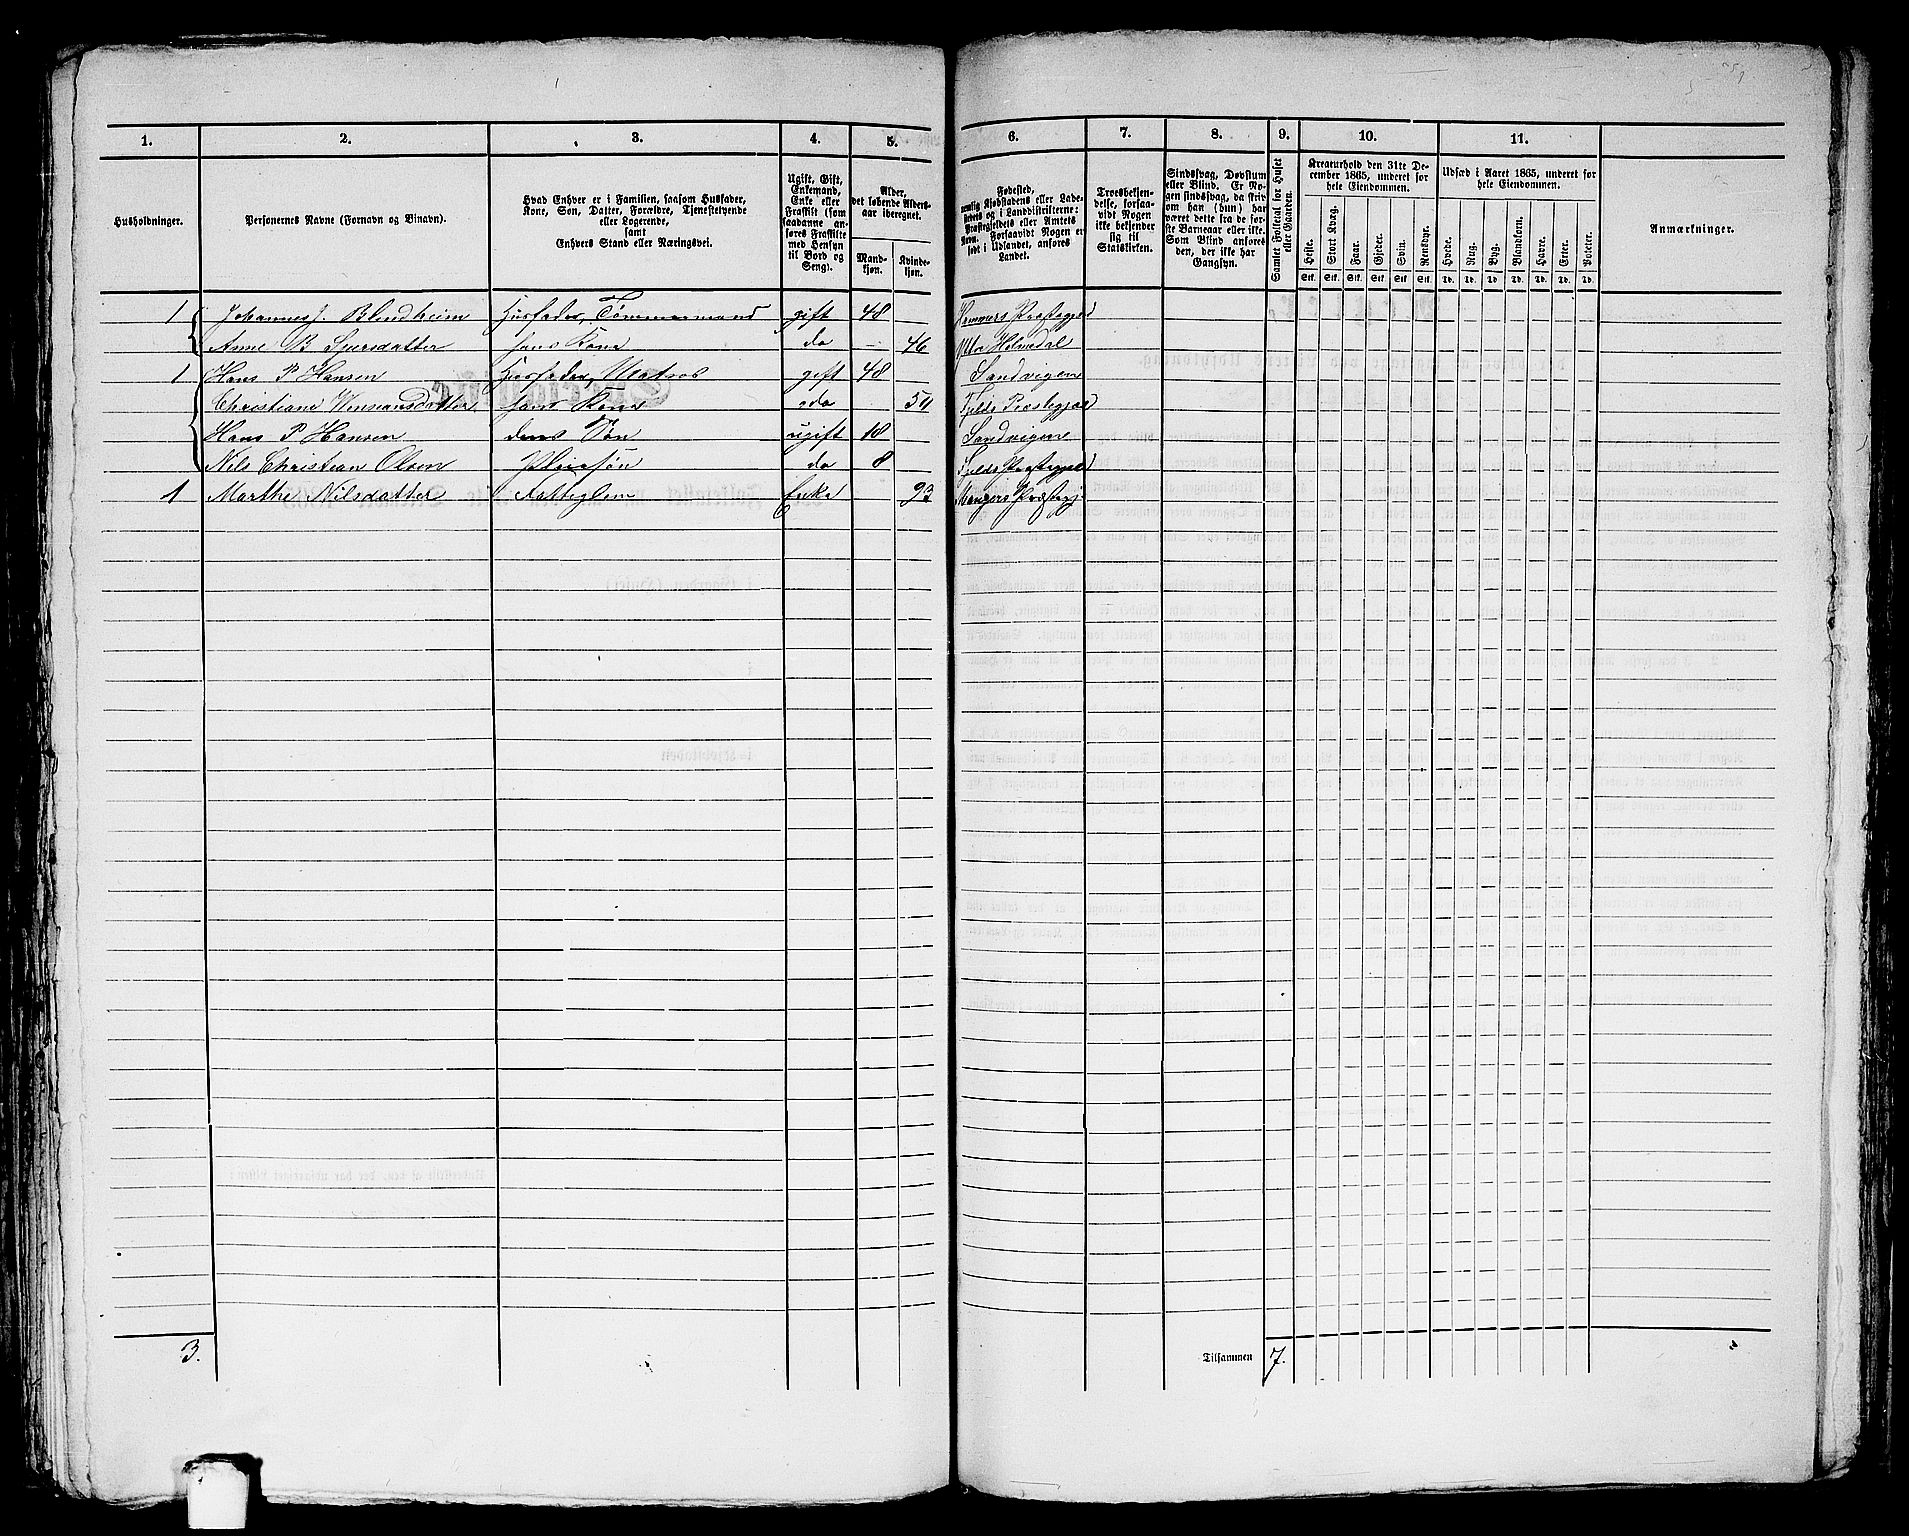 1. 2. 3. 4. 5. 6. 7. 8. 9. 10. 11.
Husholdninger.
Personernes Navne (Fornavn og Binavn).
Hvad Enhver er i Familien, saasom Husfader,
Kone, Søn, Datter, Forældre, Tjenestetyende
eller Logerende,
samt
Enhvers Stand eller Næringsvei.
Ugift, Gift,
Enkemand,
Enke eller
Fraskilt (som
saadanne an-
føres Fraskilte
med Hensyn
til Bord og
Seng).
Alder,
det løbende Alders-
aar iberegnet.
Mand-
kjøn.
Kvinde-
kjøn.
Fødested,
nemlig Kjøbstadens eller Lade-
stedets og i Landdistrikterne:
Præstegjeldets eller Amtets
Navn. Forsaavidt Nogen er
født i Udlandet, anføres
Landet.
Troesbekjen-
delse, forsaa-
vidt Nogen
ikke bekjender
sig til
Statskirken.
Sindssvag, Døvstum
eller Blind. Er No-
gen sindssvag, da skriv
om han (hun) har
været dette fra de før-
ste Barneaar eller ikke.
Som Blind anføres
den, der ikke har
Gangsyn.
Samlet Folketal for Huset
eller Gaarden.
Kreaturhold den 31te De-
cember 1865, underet for
hele Eiendommen.
Heste. Stort Kvæg. Faar. Gjeder. Svin. Rensdyr.
Stk. Stk. Stk. Stk. Stk. Stk.
Udsæd i Aaret 1865, underet for
hele Eiendommen.
Hvede. Rug. Byg. Blandkorn. Havre. Erter. Poteter.
Td. Td. Td. Td. Td. Td. Td.
Anmærkninger.
1 Johannes J. Blendheim Husfader, Tømmermand gift 48 Hammers Præstegjeld
Anne B Sjursdatter hans Kone do 46 Yttre Holmedal
1 Hans P Hansen Husfader, Matros gift 48 Sandvigen
Christiane hans Kone do Fjelds Præstegjeld
Hans P Hansen deres Søn ugift 18 Sandvigen
Nils Christian Olsen Pleiesøn do 8 Fjelds Præstegjeld
1 Marthe Nilsdatter Fattiglem Enke 93 Mangers Præstegj.
3. Tilsammen 7.